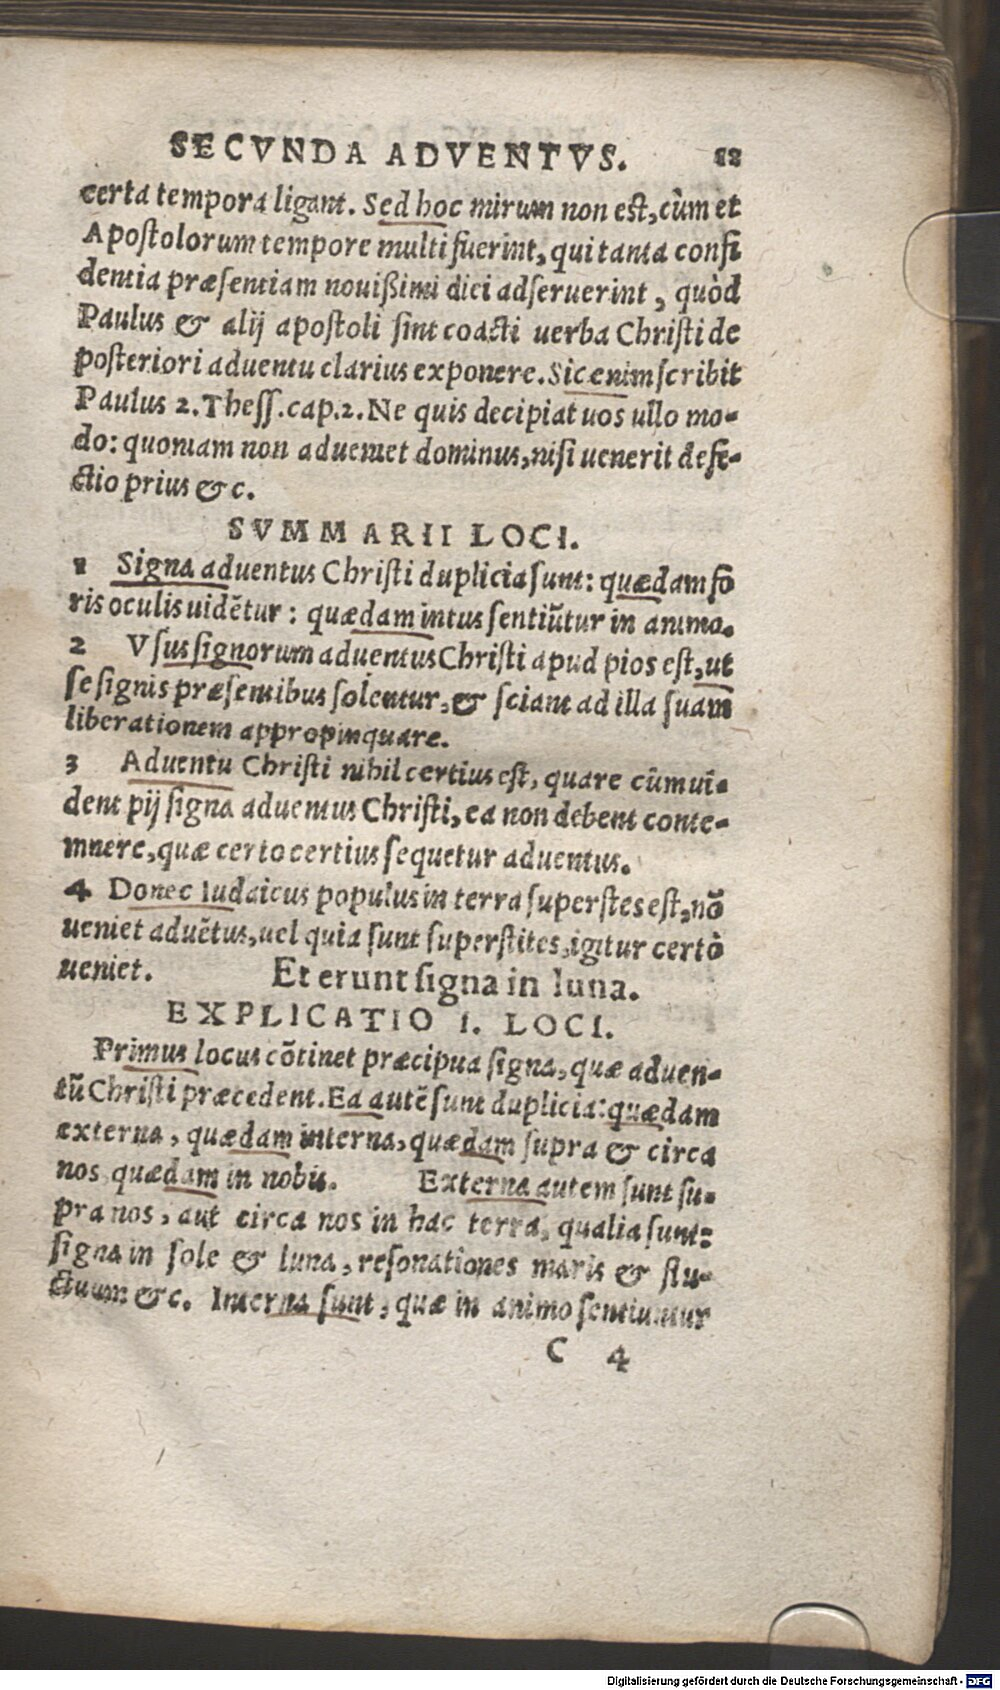 SECVNDA ADVENTVS. 12
certa tempora ligant. Sed hoc mirum non est, cùm et
Apostolorum tempore multi fuerint, qui tanta confi
dentia præsentiam nouißimi diei adseruerint, quòd
Paulus & alij apostoli sint coacti uerba Christi de
posteriori aduentu clarius exponere. Sic enim scribit
Paulus 2. Thess. cap. 2. Ne quis decipiat uos ullo mo-
do: quoniam non adueniet dominus, nisi uenerit defe-
ctio prius &c.
SVMMARII LOCI.
1 Signa aduentus Christi duplicia sunt: quædam fo
ris oculis uidẽtur: quædam intus sentiũtur in animo.
2 Vsus signorum aduentus Christi apud pios est, ut
se signis præsentibus solentur, & sciant ad illa suam
liberationem appropinquare.
3 Aduentu Christi nihil certius est, quare cũm ui-
dent pij signa aduentus Christi, ea non debent conte-
mnere, quæ certo certius sequetur aduentus.
4 Donec Iudaicus populus in terra superstes est, nõ
ueniet aduẽtus, uel quia sunt superstites, igitur certò
ueniet. Et erunt signa in luna.
EXPLICATIO I. LOCI.
Primus locus cõtinet præcipua signa, quæ aduen-
tũ Christi præcedent. Ea autẽ sunt duplicia: quædam
externa, quædam interna, quædam supra & circa
nos, quædam in nobis. Externa autem sunt su-
pra nos, aut circa nos in hac terra, qualia sunt:
signa in sole & luna, resonationes maris & flu-
ctuum &c. Interna sunt, quæ in animo sentiuntur
C 4
Digitalisierung gefördert durch die Deutsche Forschungsgemeinschaft - DFG